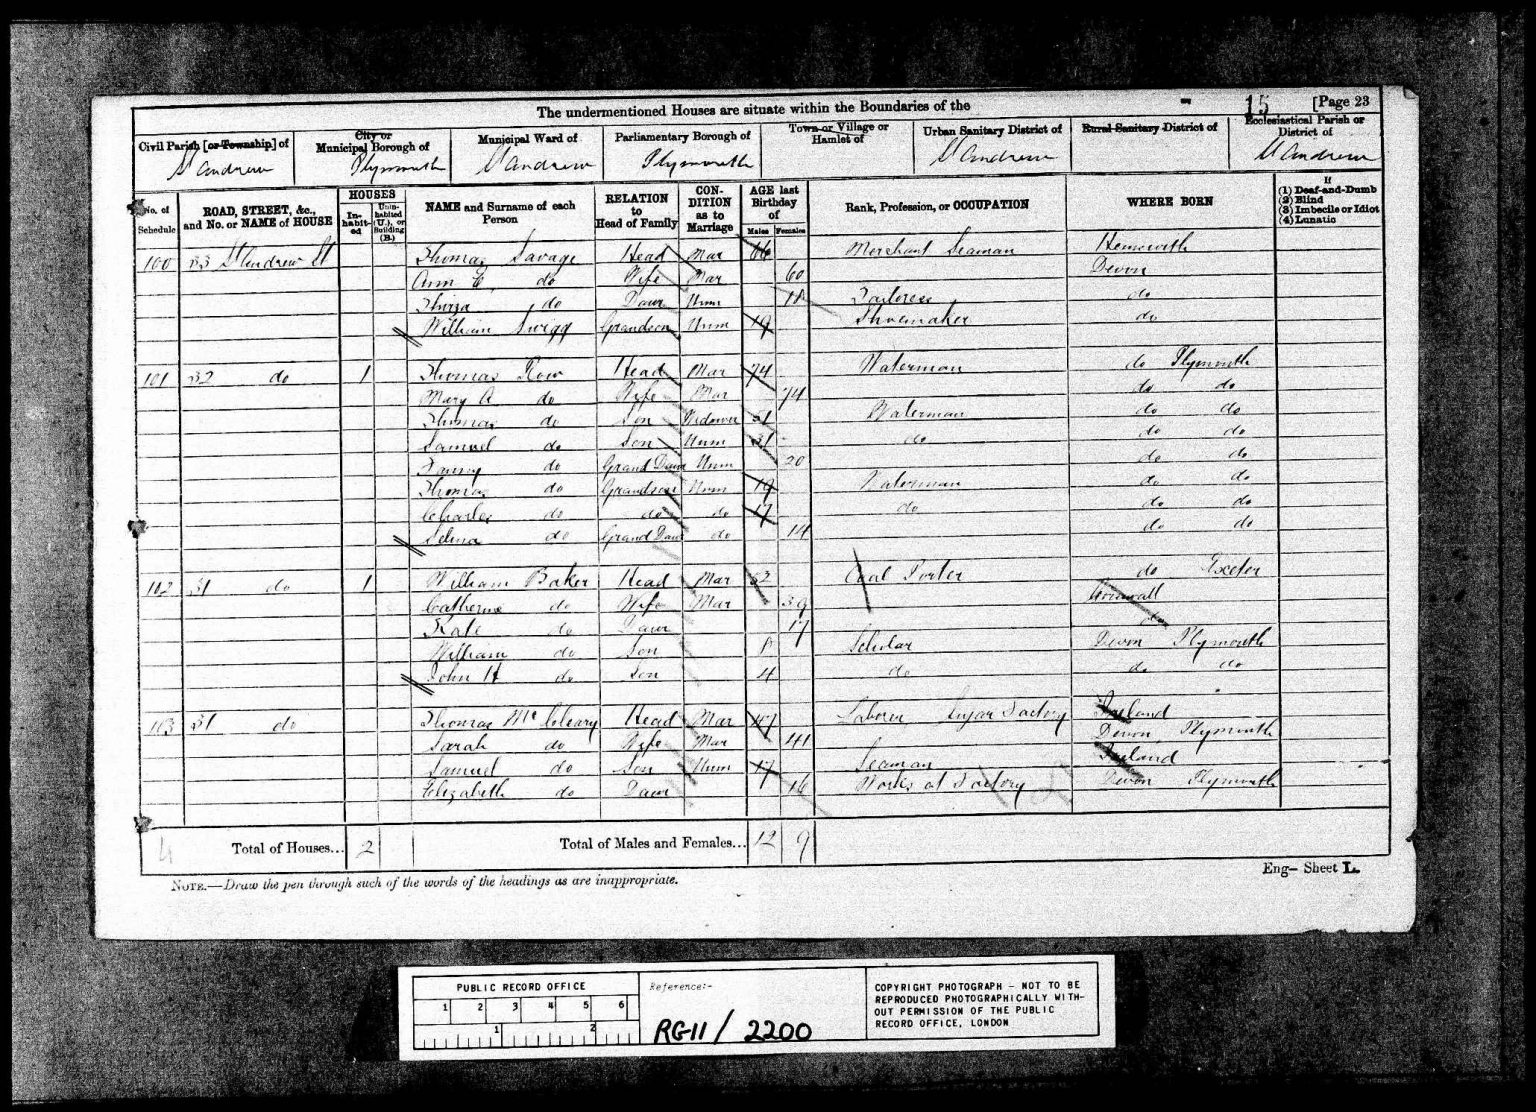 The undermentioned Houses are situate within the Boundaries of the 15 [Page 23
Civil Parish [or Township] of
City or Municipal Borough of
Municipal Ward of
Parliamentary Borough of
Town or Village or Hamlet of
Urban Sanitary District of
Rural Sanitary District of
Ecclesiastical Parish or District of
St Andrew Plymouth St Andrew Plymouth St Andrew St Andrew
No. of Schedule
ROAD, STREET, &c., and No. or NAME of HOUSE
HOUSES
In-habit-ed
Unin-habited (U.), or Building (B.)
NAME and Surname of each Person
RELATION to Head of Family
CON-DITION as to Marriage
AGE last Birthday of
Males Females
Rank, Profession, or OCCUPATION
WHERE BORN
If
(1) Deaf-and-Dumb
(2) Blind
(3) Imbecile or Idiot
(4) Lunatic
100 33 St Andrew St Thomas Savage Head Mar 66 Merchant Seaman
Ann E. do Wife Mar 60 Devon
Thirza do Daur Unm 18 Tailoress do
William Grandson Unm 19 Shoemaker do
101 32 do 1 Thomas Row Head Mar 74 Waterman do Plymouth
Mary A do Wife Mar 74 do do
Thomas do Son Widower 51 Waterman do do
Samuel do Son Unm 31 do do do
Fanny do Grand Daur Unm 20 do do
Thomas do Grandson Unm 19 Waterman do do
Charles do do do 17 do do do
Selina do Grand Daur do 14 do do
102 31 do 1 William Baker Head Mar 52 Coal Porter do Exeter
Catherine do Wife Mar 39 Cornwall
Kate do Daur 17 do
William do Son 8 Scholar Devon Plymouth
John H do Son 4 do do do
103 31 do Thomas Mc Cleary Head Mar 47 Laborer Sugar Factory Ireland
Sarah do Wife Mar 41 Devon Plymouth
Samuel do Son Unm 17 Seaman Ireland
Elizabeth do Daur 16 Works at Factory Devon Plymouth
4 Total of Houses... 2 Total of Males and Females... 12 9
NOTE.—Draw the pen through such of the words of the headings as are inappropriate.
Eng— Sheet L.
PUBLIC RECORD OFFICE
1 2 3 4 5 6
1 2
Reference:-
RG11/ 2200
COPYRIGHT PHOTOGRAPH - NOT TO BE
REPRODUCED PHOTOGRAPHICALLY WITH-
OUT PERMISSION OF THE PUBLIC
RECORD OFFICE, LONDON